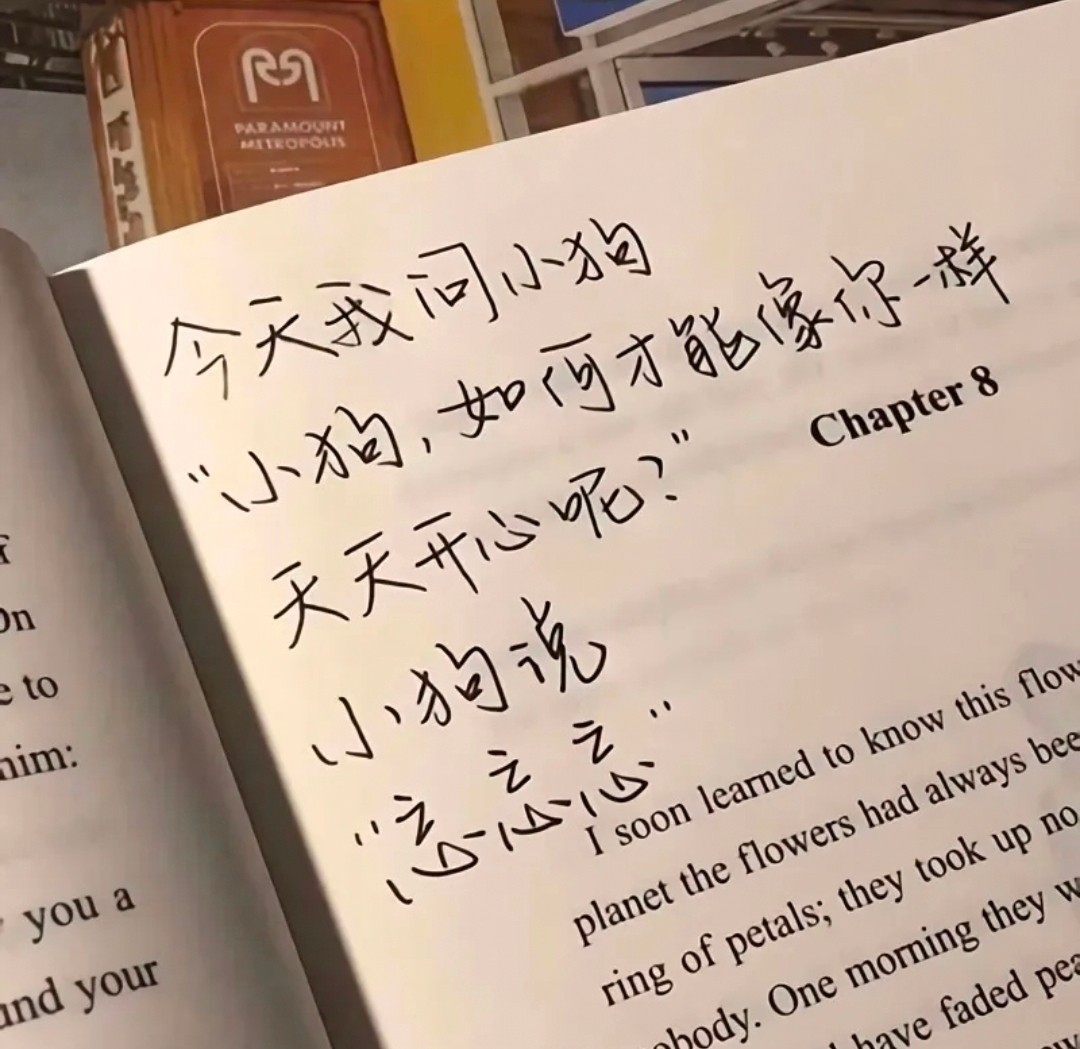 PARAMOUNT
METROPOLIS
今天我问小狗
“小狗，如何才能像你一样
天天开心呢？”
小狗说
“忘忘忘”
Chapter 8
I soon learned to know this flow
planet the flowers had always bee
ring of petals; they took up no
obody. One morning they w
have faded pea
On
e to
him:
you a
and your